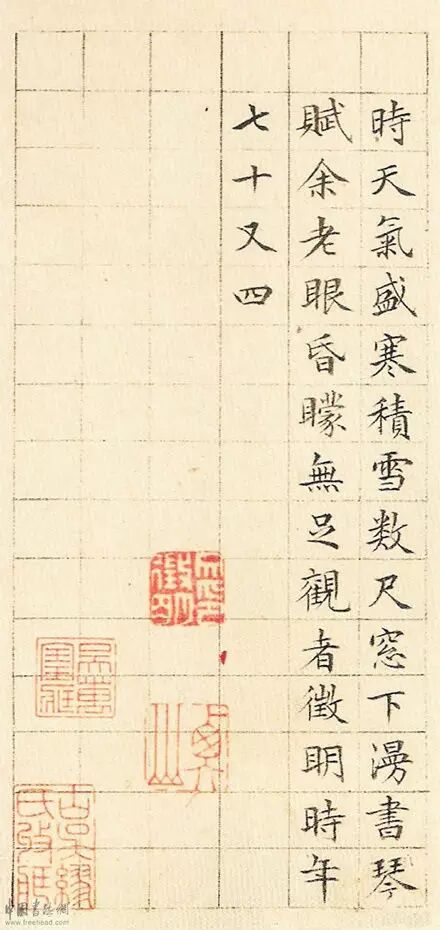 時天氣盛寒積雪数尺窓下漫書琴
賦余老眼昏矇無足觀者徵明時年
七十又四
www.freehead.com